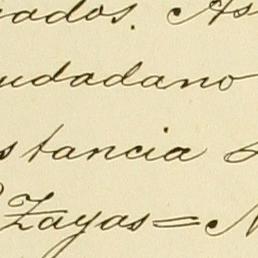 ados. As
udadano
stancia
Zayas=